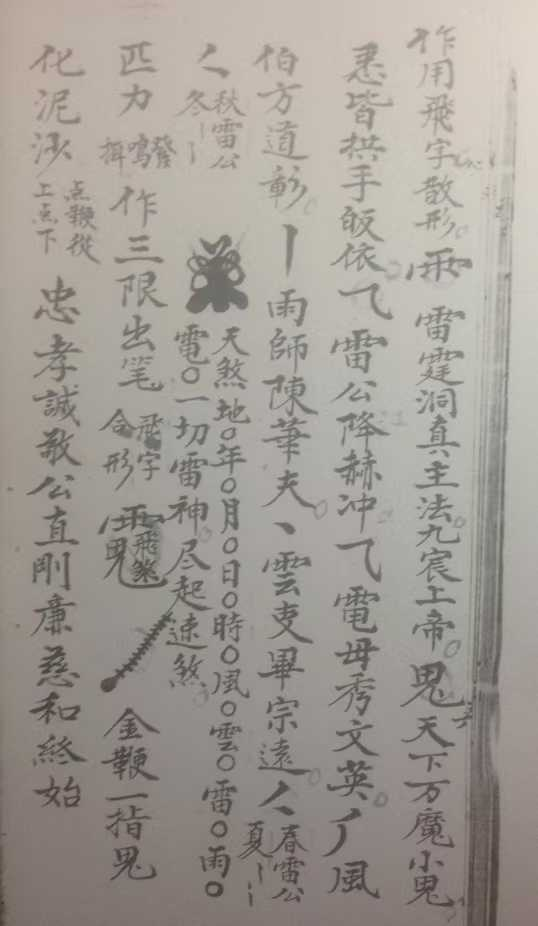 作用飛字散形。雨 雷霆洞真主法。九宸上帝。鬼 天下万魔小鬼
悉皆拱手皈依。乁雷公降赫冲。乁電母秀文英。丿風
伯方道彰。丨雨師陳華夫。丶雲吏畢宗遠。𠆢春雷公夏〻〻
𠆢秋雷公冬〻〻 天煞地〇年〇月〇日〇時〇風〇雲〇雷〇雨〇電〇一切雷神。尽起速煞。
匹力發鳴揖作三限出笔飛字合形 金鞭一指鬼
化泥沙点鞭從上点下 忠孝誠敬公直剛廉慈和終始